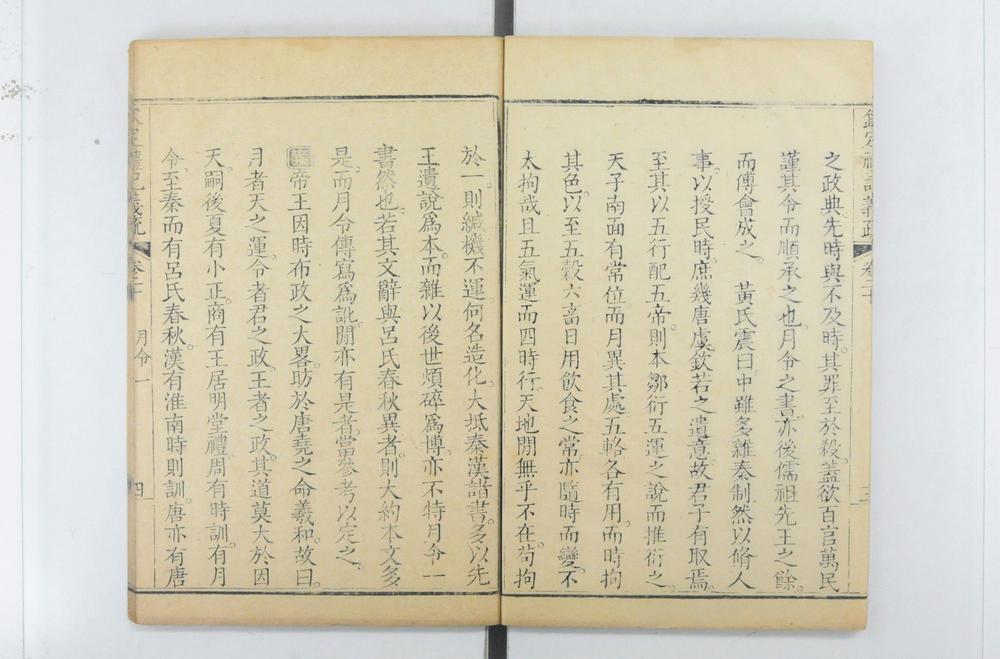 欽定禮記義疏 卷二十 三
之政典先時與不及時。其罪至於殺。蓋欲百官萬民
謹其令而順承之也。月令之書。亦後儒祖先王之餘。
而傅會成之。 黃氏震曰。中雖多雜秦制。然以脩人
事。以授民時。庶幾唐虞欽若之遺意。故君子有取焉。
至其以五行配五帝。則本鄒衍五運之說而推衍之。
天子南面有常位。而月異其處。五輅各有用。而時拘
其色。以至五穀六畜。日用飲食之常。亦隨時而變。不
太拘哉。且五氣運而四時行。天地閒無乎不在。苟拘
於一。則緘機不運。何名造化。大抵秦漢諸書。多以先
王遺說爲本。而雜以後世煩碎爲博。亦不特月令一
書然也。若其文辭與呂氏春秋異者。則大約本文多
是。而月令傳寫爲訛。閒亦有是者。當參考以定之。
案帝王因時布政之大畧。昉於唐堯之命羲和。故曰。
月者天之運。令者君之政。王者之政。其道莫大於因
天。嗣後夏有小正。商有王居明堂禮。周有時訓。有月
令。至秦而有呂氏春秋。漢有淮南時則訓。唐亦有唐
欽定禮記義疏 卷二十 月令一 四